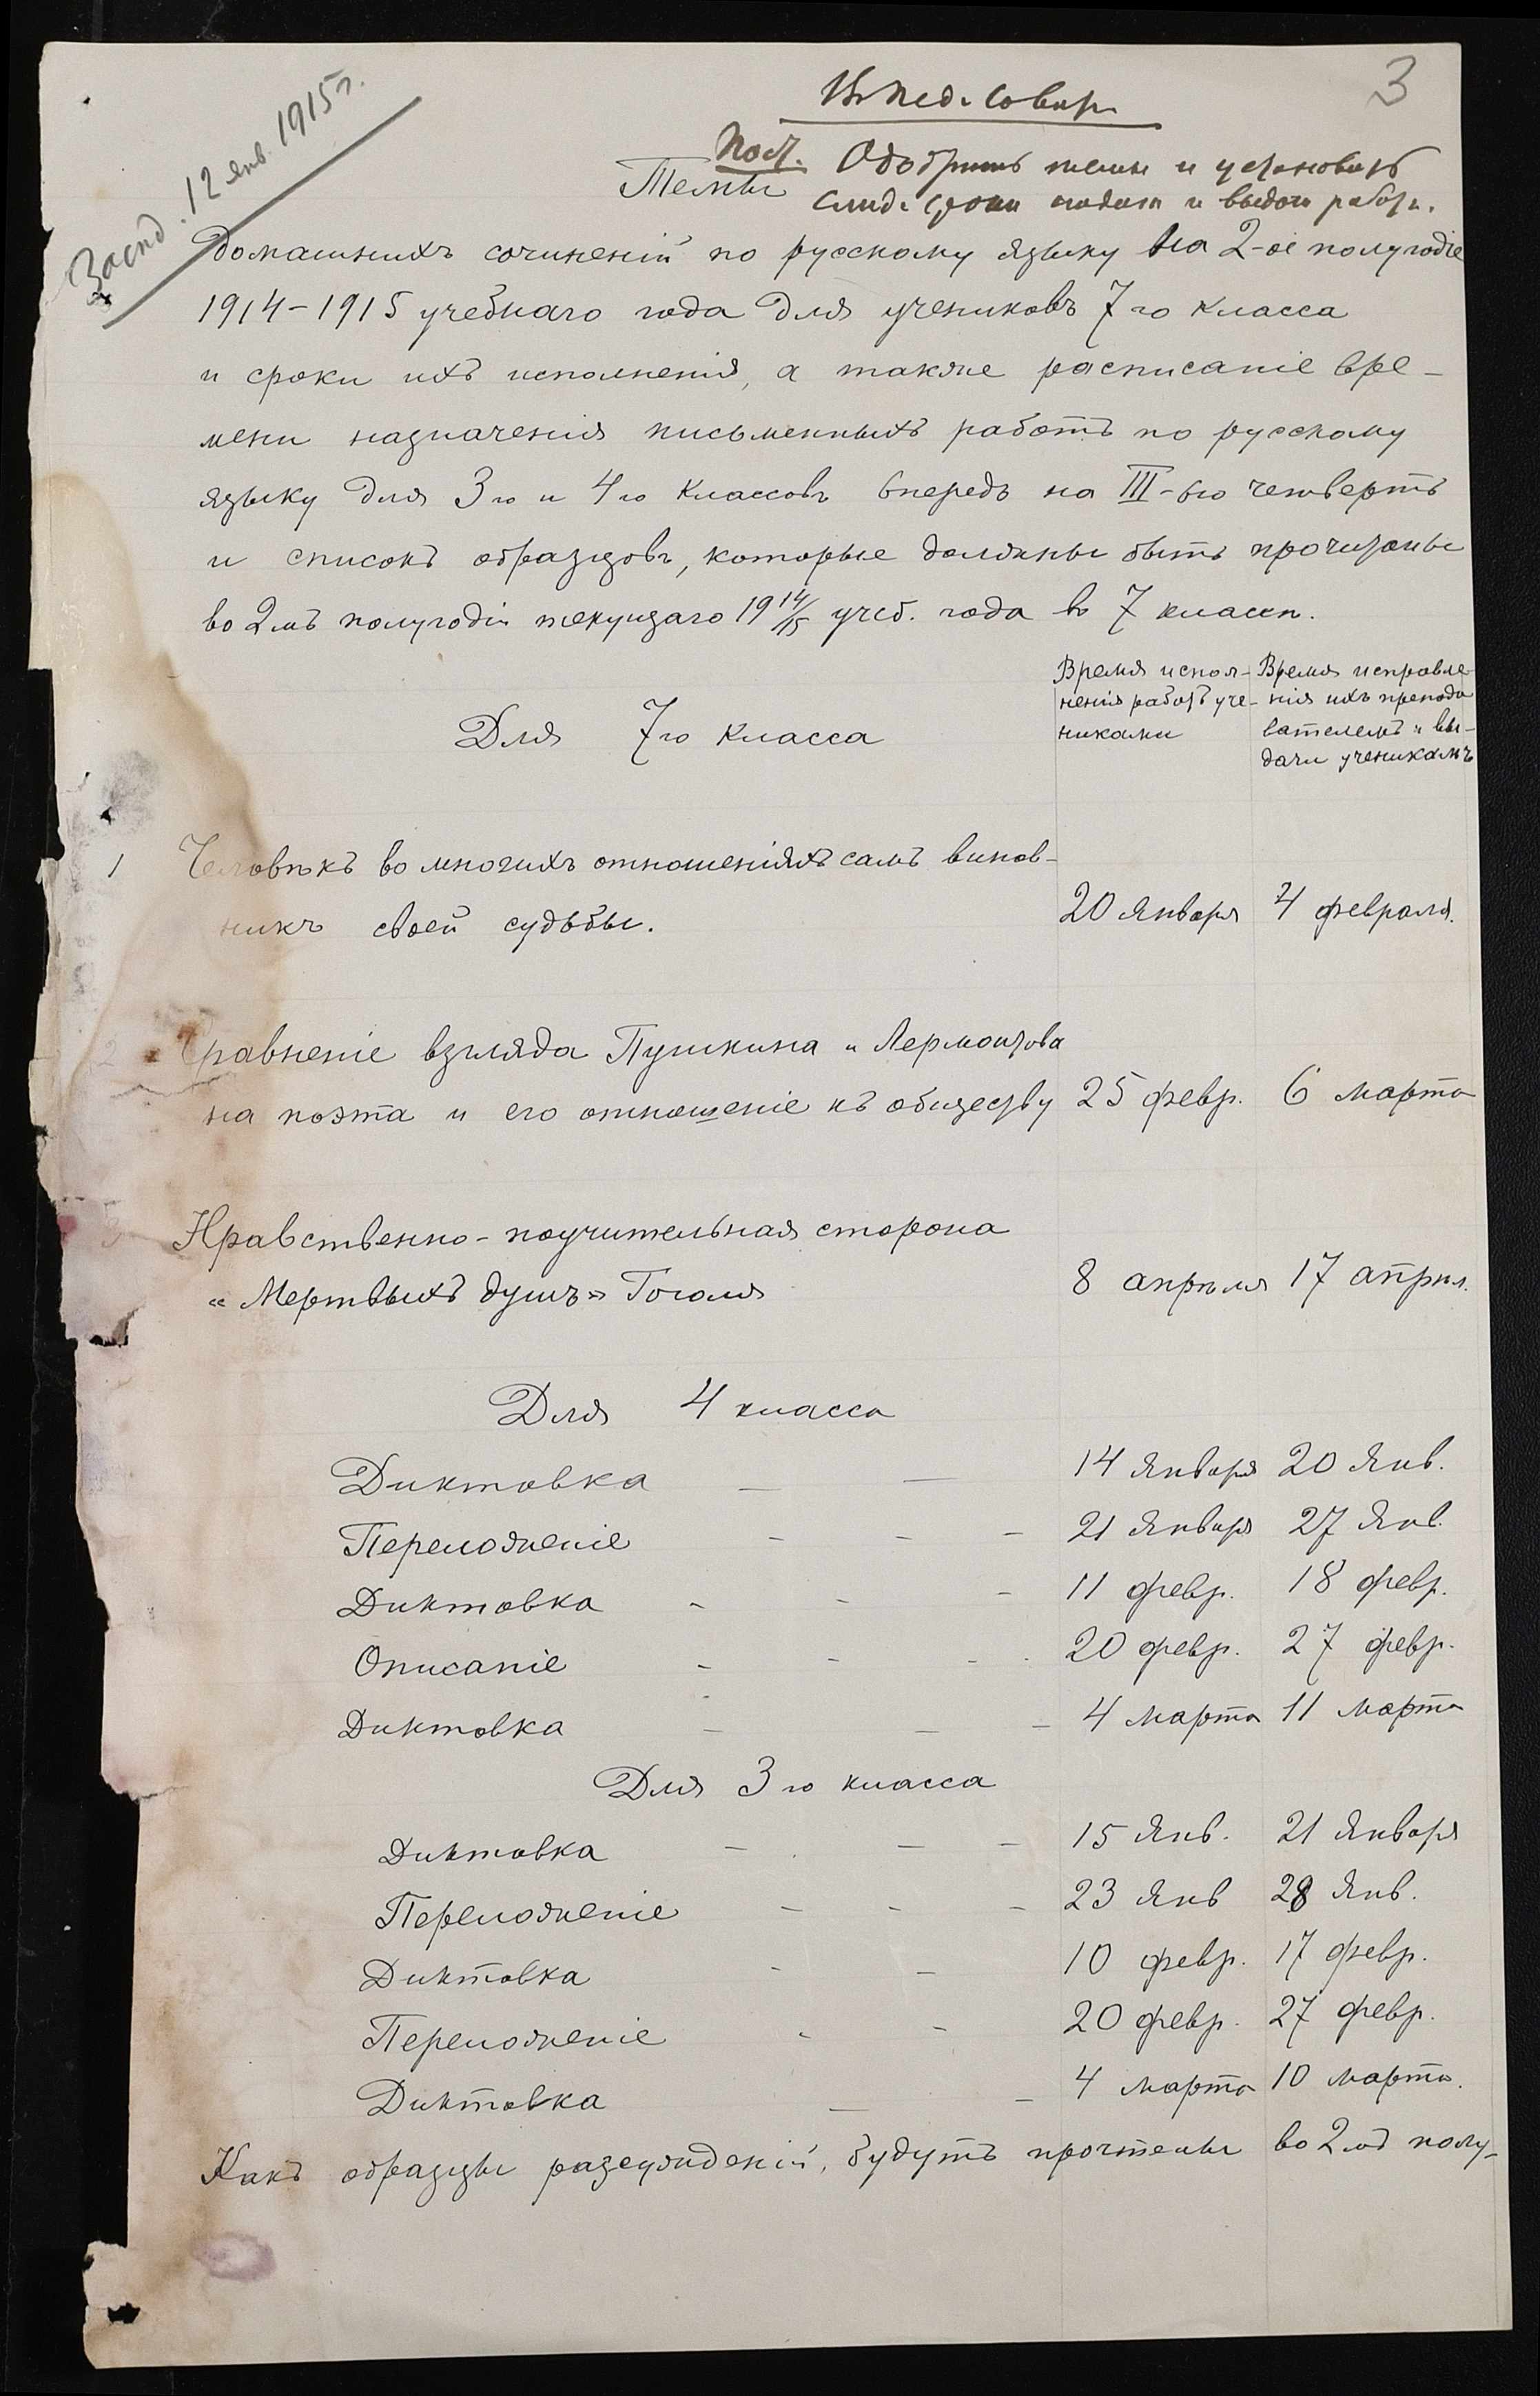 3
Засѣд. 12 янв. 1915 г.
Въ Пед. Совѣтъ
Пост. Одобрить темы и установить
слѣд. сроки подачи и выдачи работъ.
Темы
домашнихъ сочиненій по русскому языку на 2-ое полугодіе
1914-1915 учебнаго года для учениковъ 7го класса
и сроки ихъ исполненія, а также росписаніе вре-
мени назначенія письменныхъ работъ по русскому
языку для 3го и 4го классовъ впередъ на III-ью четверть
и списокъ образцовъ, которые должны быть прочитаны
во 2мъ полугодіи текущаго 19 14/15 учеб. года въ 7 классѣ.
Для 7го класса
Время испол-
ненія работъ уче-
никами
Время исправле-
нія ихъ препода
вателемъ и вы-
дачи ученикамъ
1 Человѣкъ во многихъ отношеніяхъ самъ винов-
никъ своей судьбы. 20 января 4 февраля.
2 Сравненіе взгляда Пушкина и Лермонтова
на поэта и его отношеніе къ обществу 25 февр. 6 марта
Нравственно-поучительная сторона
"Мертвыхъ душъ" Гоголя 8 апрѣля 17 апрѣл.
Для 4 класса
Диктовка — — 14 января 20 янв.
Переложеніе - - - 21 января 27 янв.
Диктовка - - - 11 февр. 18 февр.
Описаніе - - - 20 февр. 27 февр.
Диктовка - - - 4 марта 11 марта
Для 3го класса
Диктовка - - - 15 янв. 21 января
Переложеніе - - - 23 янв 28 янв.
Диктовка - - 10 февр. 17 февр.
Переложеніе - - 20 февр. 27 февр.
Диктовка — - 4 марта 10 марта.
Какъ образцы разсужденій, будутъ прочтены во 2мъ полу-